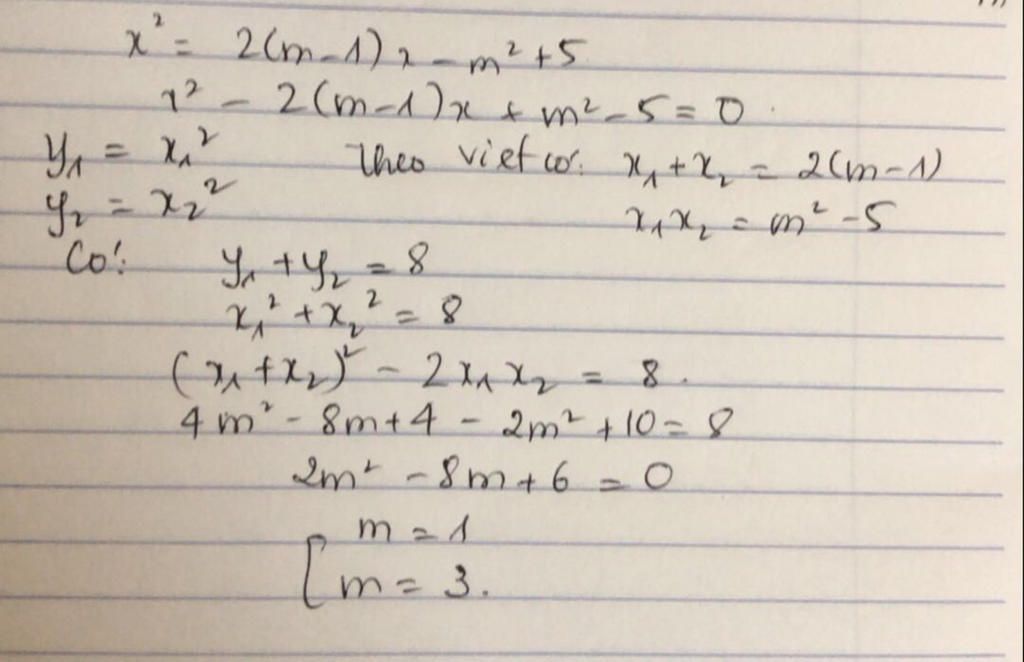 x² = 2(m-1)x - m² + 5
x² - 2(m-1)x + m² - 5 = 0.
y₁ = x₁² Theo viet có: x₁ + x₂ = 2(m-1)
y₂ = x₂² x₁x₂ = m² - 5
Có: y₁ + y₂ = 8
x₁² + x₂² = 8
(x₁ + x₂)² - 2x₁x₂ = 8.
4m² - 8m + 4 - 2m² + 10 = 8
2m² - 8m + 6 = 0
[ m = 1
m = 3.